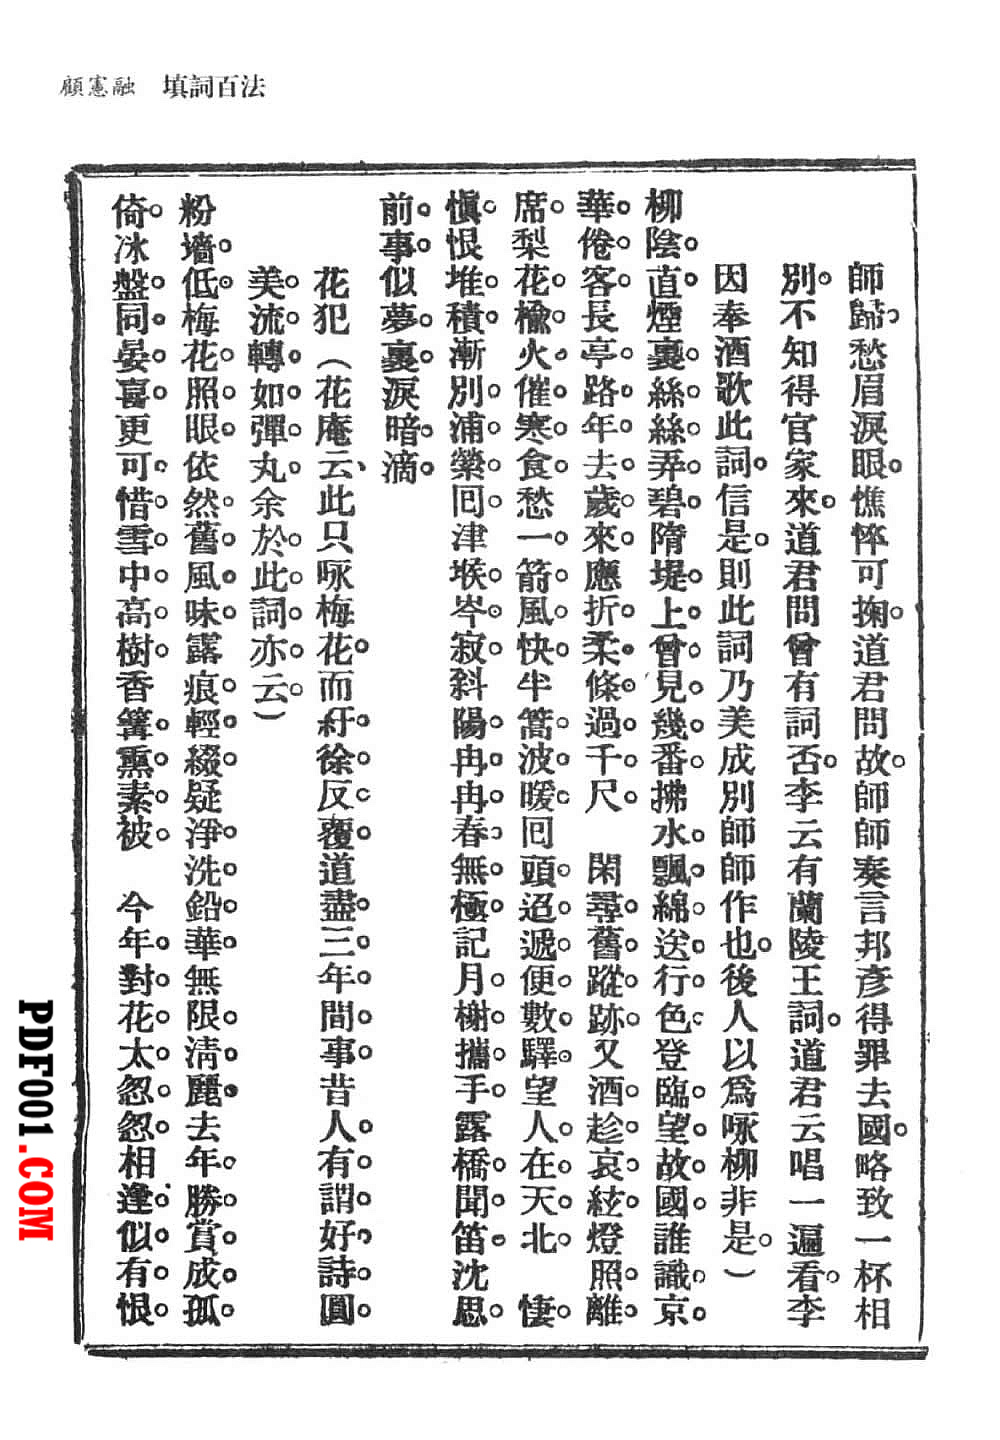 顧憲融 填詞百法
師歸。愁眉淚眼。憔悴可掬。道君問故。師師奏言邦彥得罪去國。略致一杯相
別。不知得官家來。道君問曾有詞否。李云有蘭陵王詞。道君云唱一遍看。李
因奉酒歌此詞。信是。則此詞乃美成別師師作也。後人以爲咏柳非是。）
柳陰。直。煙裏。絲絲。弄碧。隋堤。上。曾。見。幾。番。拂水。飄。綿。送。行。色。登臨。望。故。國。誰識。京。
華。倦。客。長亭。路。年。去。歲。來。應折。柔。條。過。千。尺。 閑尋。舊。蹤。跡。又酒。趁。哀。絃。燈照。離。
席。梨花。榆。火。催。寒。食。愁一。箭。風。快。半篙。波。暖。回頭。迢。遞。便。數。驛。望人。在。天。北。 悽。
愼。恨堆。積。漸別。浦。縈。回。津堠。岑。寂。斜陽。冉。冉。春。無。極。記月。榭。攜。手。露橋。聞。笛。沈思。
前。事。似夢。裏。淚暗。滴。
花犯（花庵云、此只咏梅花。而紆。徐。反。覆。道盡。三。年。間。事。昔人。有。謂。好。詩。圓。
美。流。轉。如。彈。丸。余於。此。詞。亦。云。）
粉墻。低。梅花。照。眼。依然。舊。風。味。露痕。輕。綴。疑淨。洗。鉛。華。無限。清。麗。去年。勝。賞。成。孤。
倚。冰盤。同。晏。喜。更可。惜。雪。中。高。樹。香篝。熏。素。被。 今年。對。花。太。忽。忽。相逢。似。有。恨。
PDF001.COM